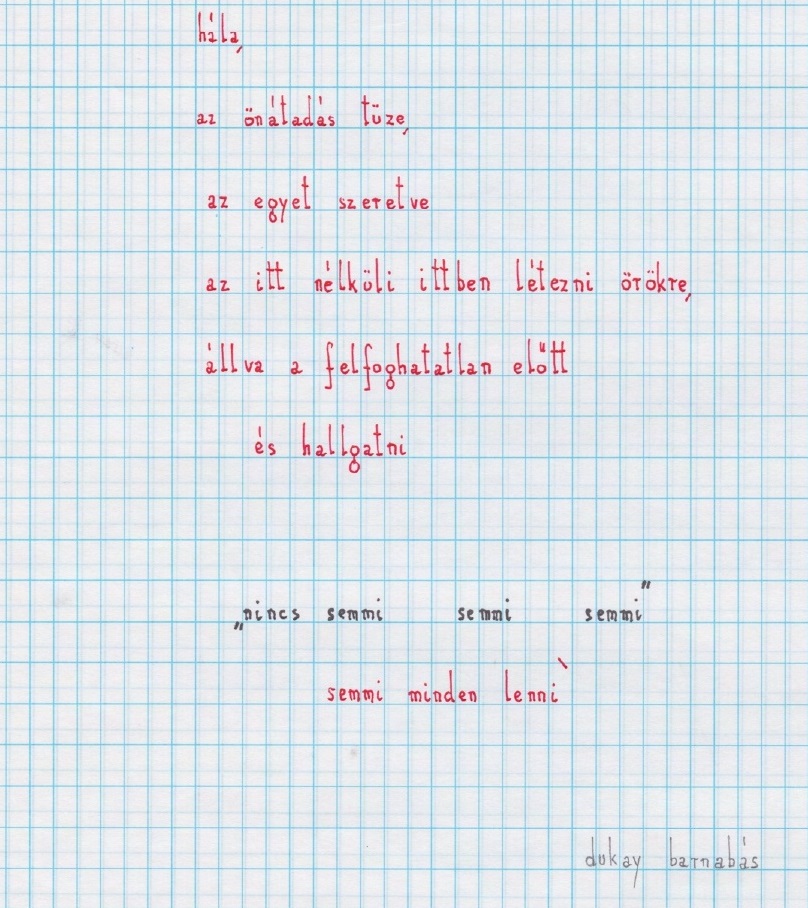 hála,
az önátadás tüze,
az egyet szeretve
az itt nélküli ittben létezni örökre,
állva a felfoghatatlan előtt
és hallgatni
„nincs semmi semmi semmi”
semmi minden lenni`
dukay barnabás